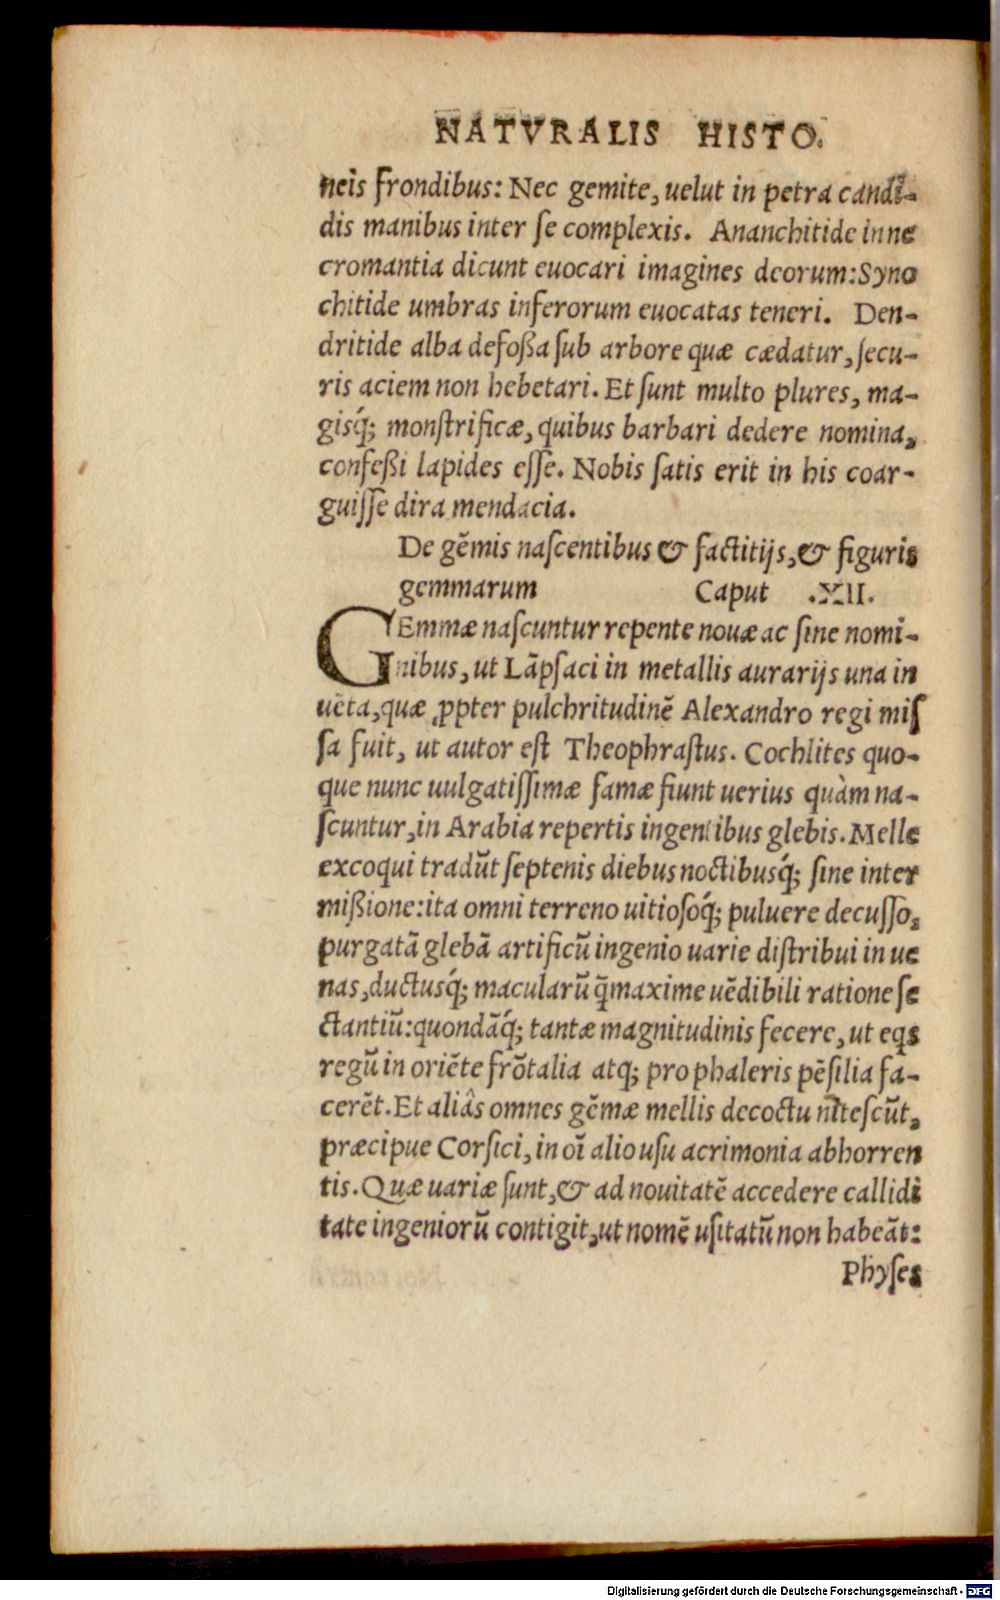 NATVRALIS HISTO.
neis frondibus: Nec gemite, uelut in petra candi-
dis manibus inter ſe complexis. Ananchitide in ne
cromantia dicunt euocari imagines deorum: Syno
chitide umbras inferorum euocatas teneri. Den-
dritide alba defoßa ſub arbore quæ cædatur, ſecu-
ris aciem non hebetari. Et ſunt multo plures, ma-
gisq́; monſtrificæ, quibus barbari dedere nomina,
confeßi lapides eſſe. Nobis ſatis erit in his coar-
guiſſe dira mendacia.
De gẽmis naſcentibus & factitijs, & figuris
gemmarum Caput .XII.
GEmmæ naſcuntur repente nouæ ac ſine nomi-
nibus, ut Lãpſaci in metallis aurarijs una in
uẽta, quæ ꝓpter pulchritudinẽ Alexandro regi miſ
ſa fuit, ut autor eſt Theophraſtus. Cochlites quo-
que nunc uulgatiſſimæ famæ fiunt uerius quàm na-
ſcuntur, in Arabia repertis ingentibus glebis. Melle
excoqui tradũt ſeptenis diebus noctibusq́; ſine inter
mißione: ita omni terreno uitioſoq́; puluere decuſſo,
purgatã glebã artificũ ingenio uarie diſtribui in ue
nas, ductusq́; macularũ q̃maxime uẽdibili ratione ſe
ctantiũ: quondãq́; tantæ magnitudinis fecere, ut eqs
regũ in oriẽte frõtalia atq; pro phaleris pẽſilia fa-
cerẽt. Et aliâs omnes gẽmæ mellis decoctu niteſcũt,
præcipue Corſici, in oĩ alio uſu acrimonia abhorren
tis. Quæ uariæ ſunt, & ad nouitatẽ accedere callidi
tate ingeniorũ contigit, ut nomẽ uſitatũ non habeãt:
Phyſes
Digitalisierung gefördert durch die Deutsche Forschungsgemeinschaft - DFG